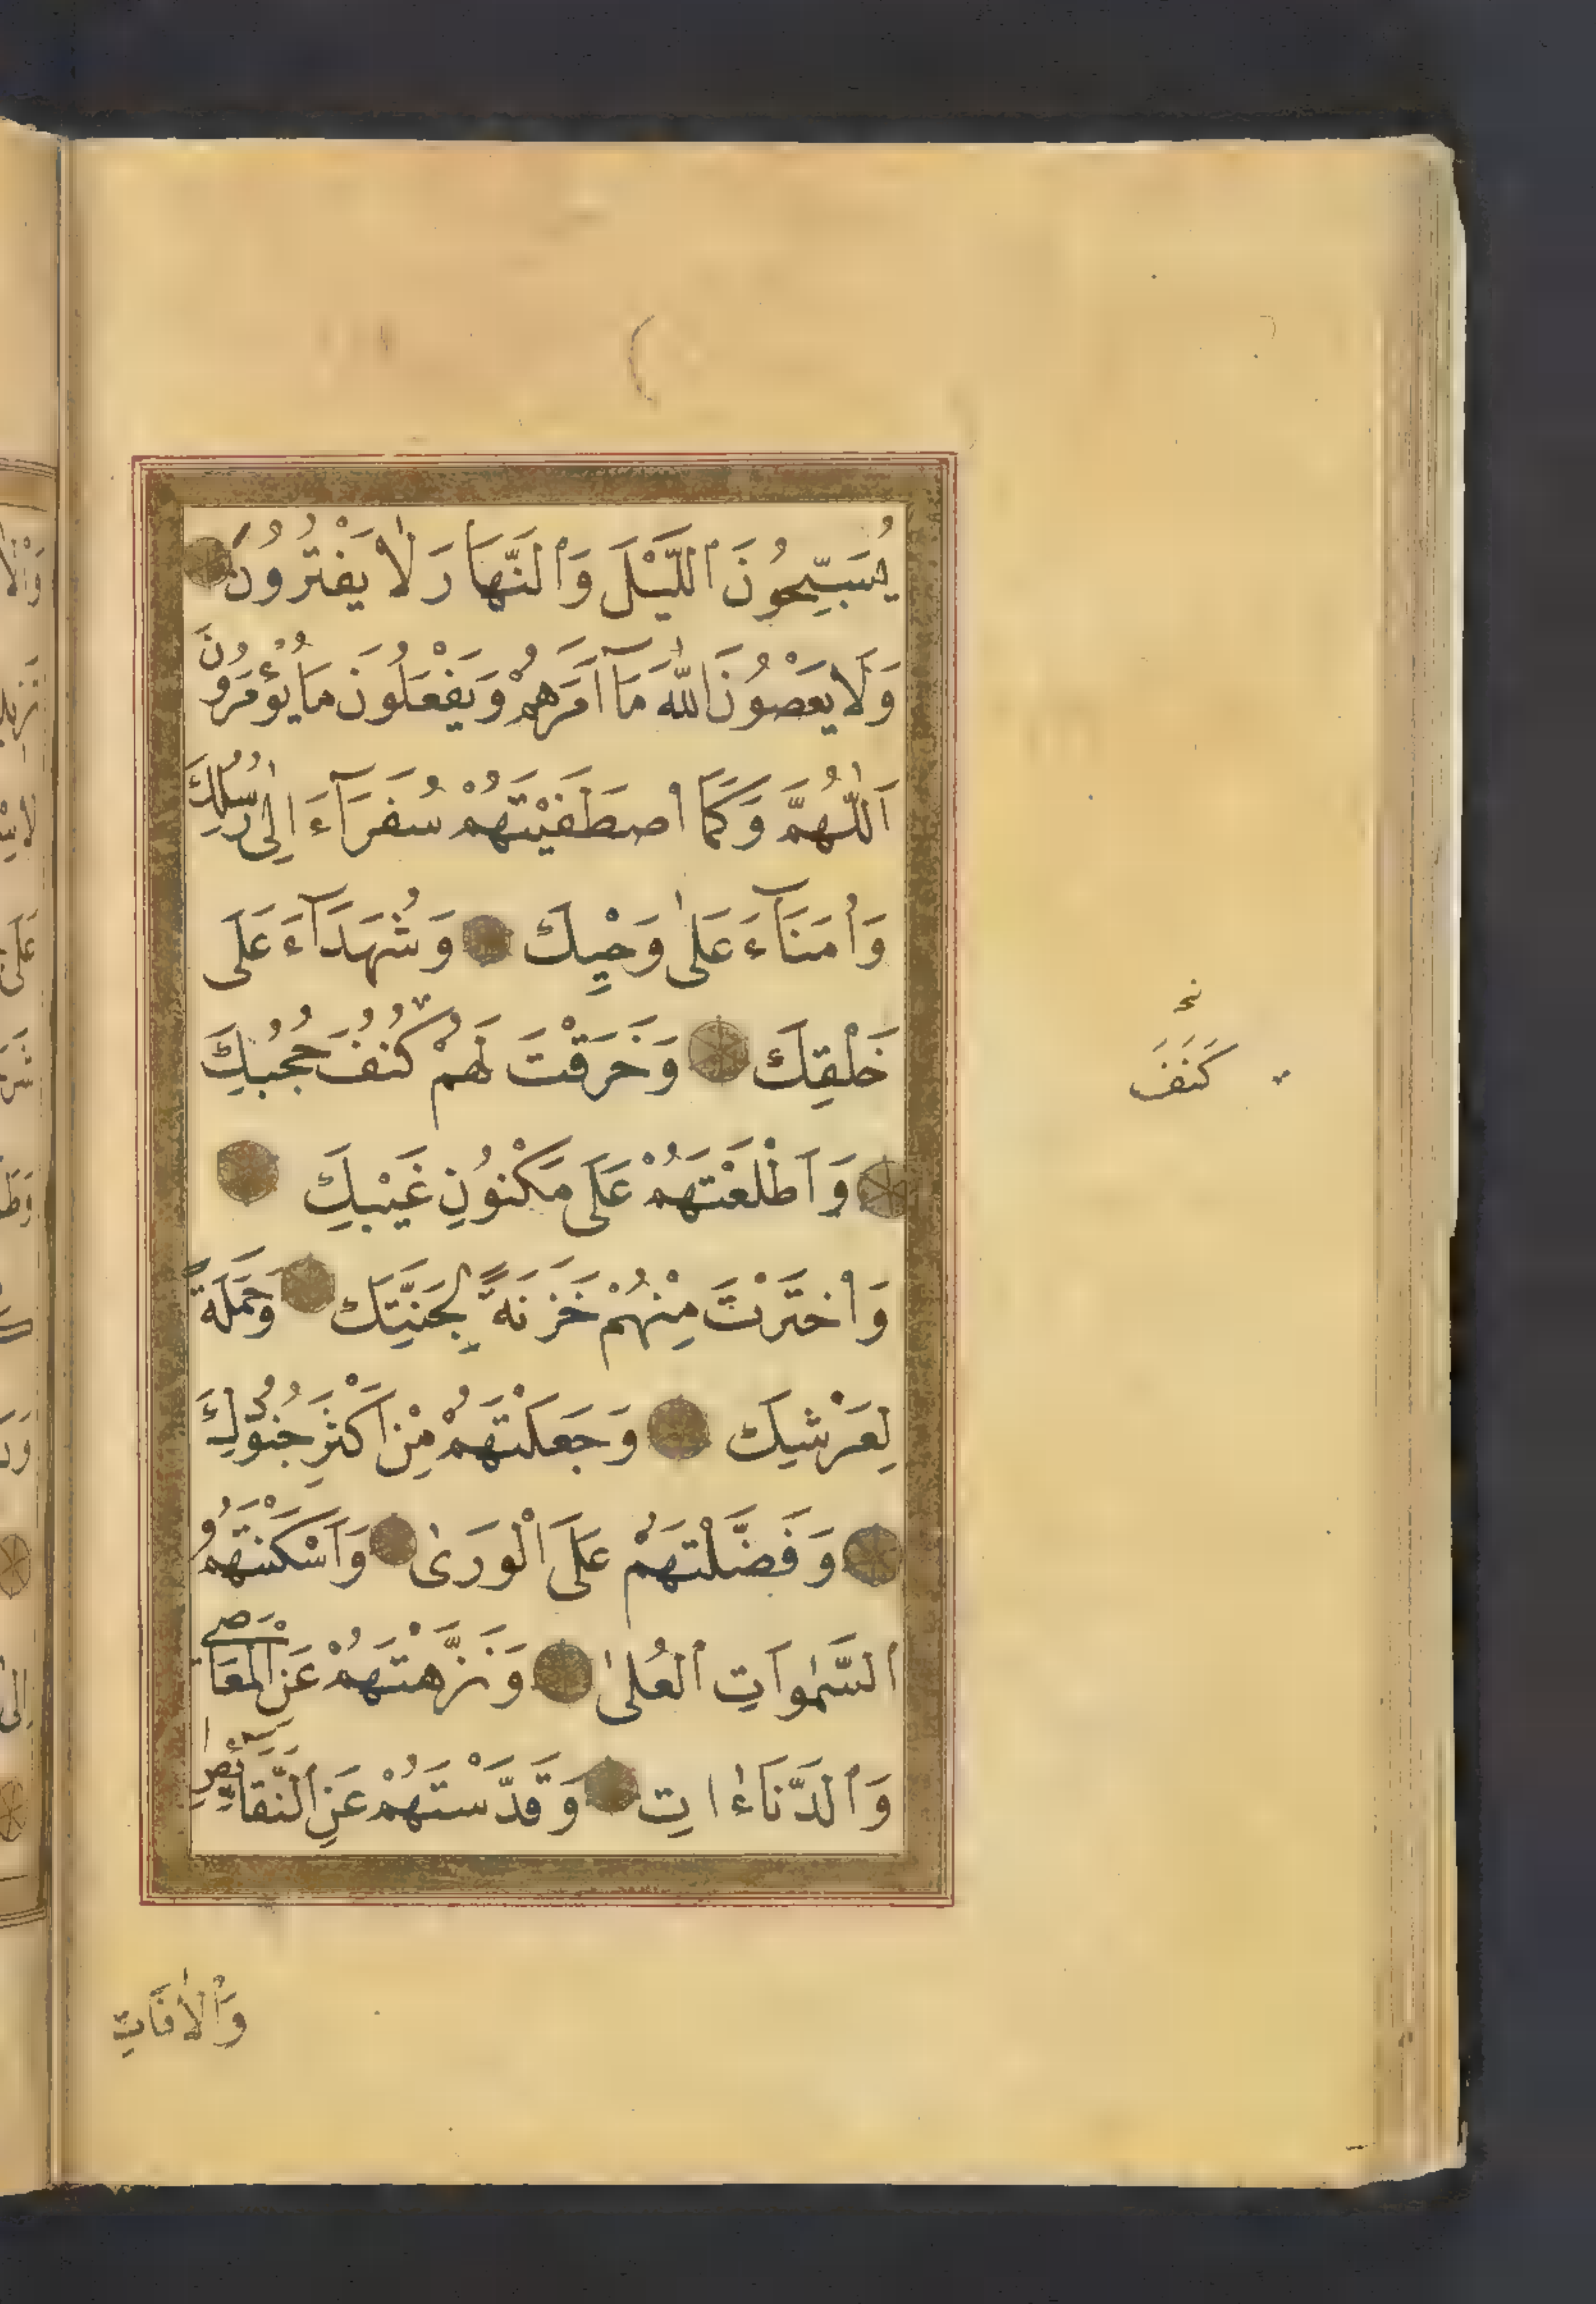 يُسَبِّحُونَ ٱللَّيْلَ وَٱلنَّهَارَ لَا يَفْتُرُونَ
وَلَا يَعْصُونَ اللّٰهَ مَآ اَمَرَهُمْ وَيَفْعَلُونَ مَا يُؤْمَرُونَ
اَللّٰهُمَّ وَكَمَا اصْطَفَيْتَهُمْ سُفَرَآءَ اِلٰى رُسُلِكَ
وَاُمَنَآءَ عَلٰى وَحْيِكَ وَشُهَدَآءَ عَلَى
خَلْقِكَ وَخَرَقْتَ لَهُمْ كُنُفَ حُجُبِكَ
نخ
كَنَفَ
وَاَطْلَعْتَهُمْ عَلَى مَكْنُونِ غَيْبِكَ
وَاخْتَرْتَ مِنْهُمْ خَزَنَةً لِجَنَّتِكَ وَحَمَلَةً
لِعَرْشِكَ وَجَعَلْتَهُمْ مِنْ اَكْثَرِ جُنُودِكَ
وَفَضَّلْتَهُمْ عَلَى الْوَرٰى وَاَسْكَنْتَهُمُ
ٱلسَّمٰوَاتِ ٱلْعُلٰى وَنَزَّهْتَهُمْ عَنِ الْمَعَاصِي
وَٱلدَّنَاءٰاتِ وَقَدَّسْتَهُمْ عَنِ ٱلنَّقَآئِصِ
وَالْاٰفَاتِ